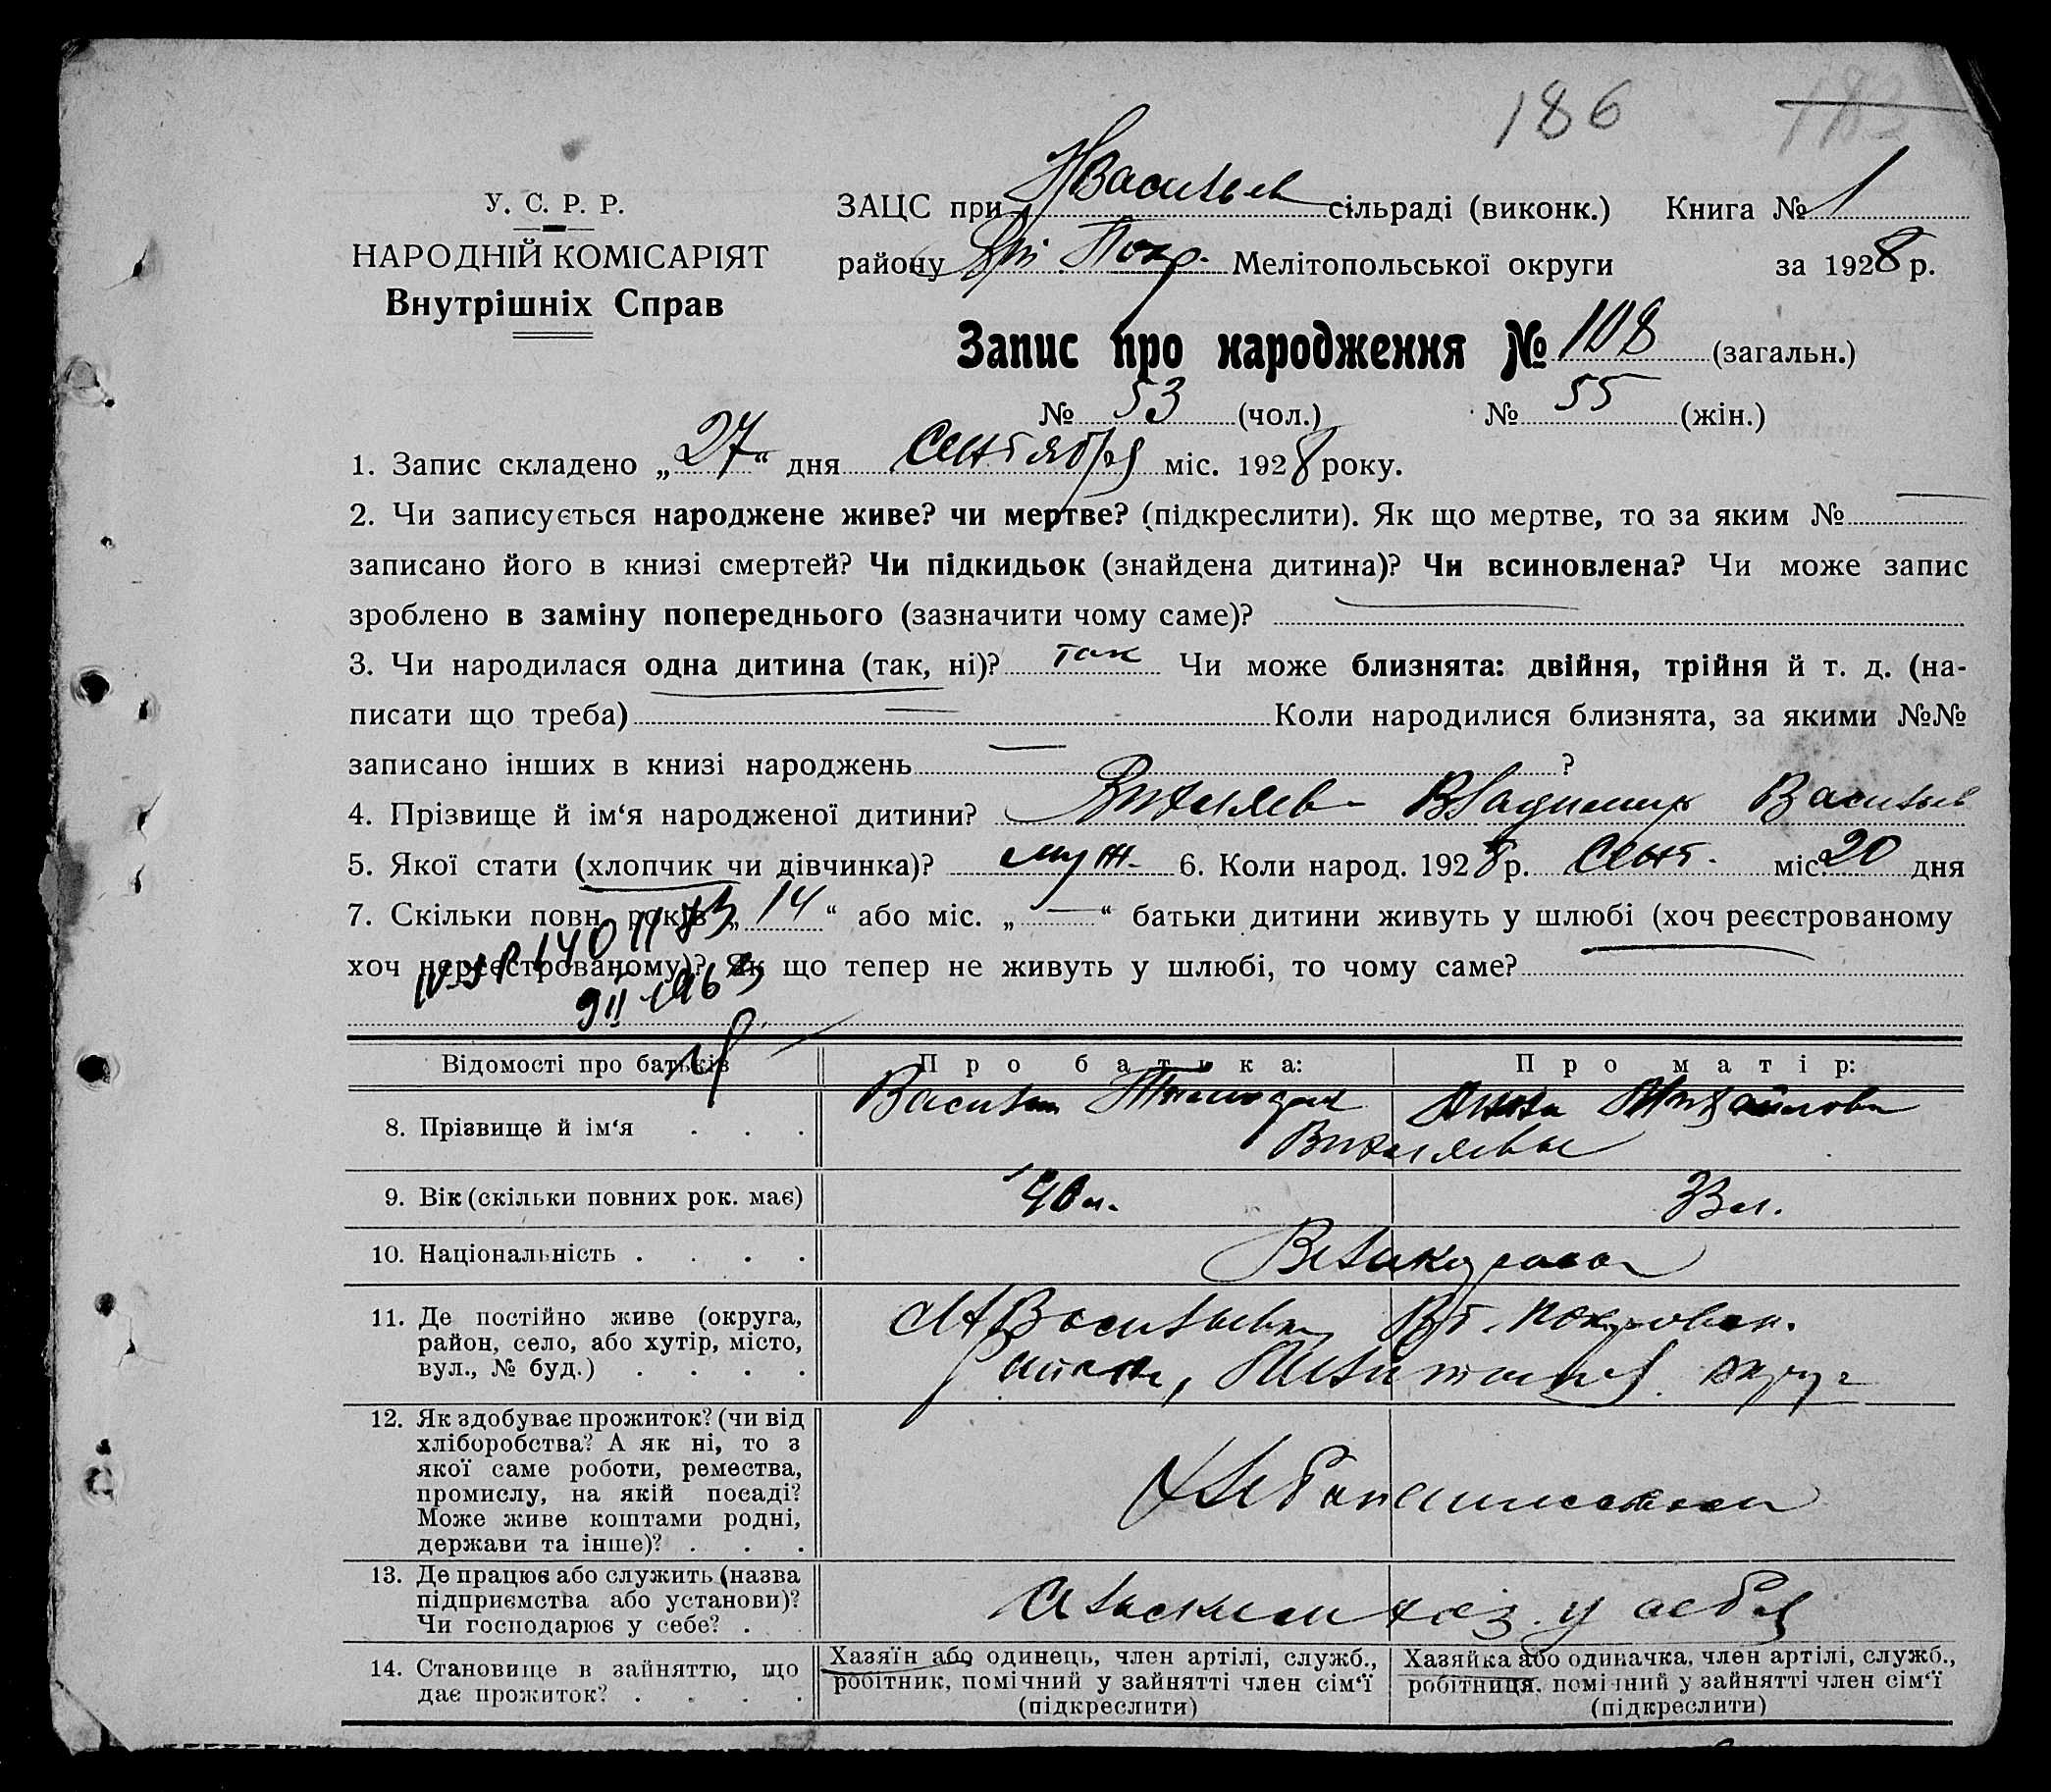 186
183
У. С. Р. Р.
НАРОДНІЙ КОМІСАРІЯТ
Внутрішніх Справ
ЗАЦС при НВасильев сільраді (виконк.) Книга № 1
району Вт. Покр. Мелітопольської округи за 1928 р.
Запис про народження № 108 (загальн.)
№ 53 (чол.) № 55 (жін.)
1. Запис складено „27“ дня Сентября міс. 1928 року.
2. Чи записується народжене живе? чи мертве? (підкреслити). Як що мертве, то за яким №
записано його в книзі смертей? Чи підкидьок (знайдена дитина)? Чи всиновлена? Чи може запис
зроблено в заміну попереднього (зазначити чому саме)?
3. Чи народилася одна дитина (так, ні)? так Чи може близнята: двійня, трійня й т. д. (на-
писати що треба) Коли народилися близнята, за якими №№
записано інших в книзі народжень ?
4. Прізвище й ім‘я народженої дитини? Владимир Васильев
5. Якої стати (хлопчик чи дівчинка)? муж. 6. Коли народ. 1928 р. Сент. міс. 20 дня
7. Скільки повн. років „14“ або міс. „—“ батьки дитини живуть у шлюбі (хоч реєстрованому
хоч нереєстрованому)? Як що тепер не живуть у шлюбі, то чому саме?
Відомості про батьків Про батька: Про матір:
8. Прізвище й ім‘я . . . Василий Анна Михайлова
9. Вік (скільки повних рок. має) 40 л. 33 л.
10. Національність . . . . Великоросы
11. Де постійно живе (округа,
район, село, або хутір, місто,
вул., № буд.) . . . .
Н Васильевка, Вт. Покровск.
района, Мелитопол. округ
12. Як здобуває прожиток? (чи від
хліборобства? А як ні, то з
якої саме роботи, ремества,
промислу, на якій посаді?
Може живе коштами родні,
держави та інше)? . . .
Хлебопашеством
13. Де працює або служить (назва
підприємства або установи)?
Чи господарює у себе? .
сельским хоз. у себя
14. Становище в зайняттю, що
дає прожиток? . . . .
Хазяїн або одинець, член артілі, служб.,
робітник, помічний у зайнятті член сім‘ї
(підкреслити)
Хазяйка або одиначка, член артілі, служб.,
робітниця, помічний у зайнятті член сім‘ї
(підкреслити)